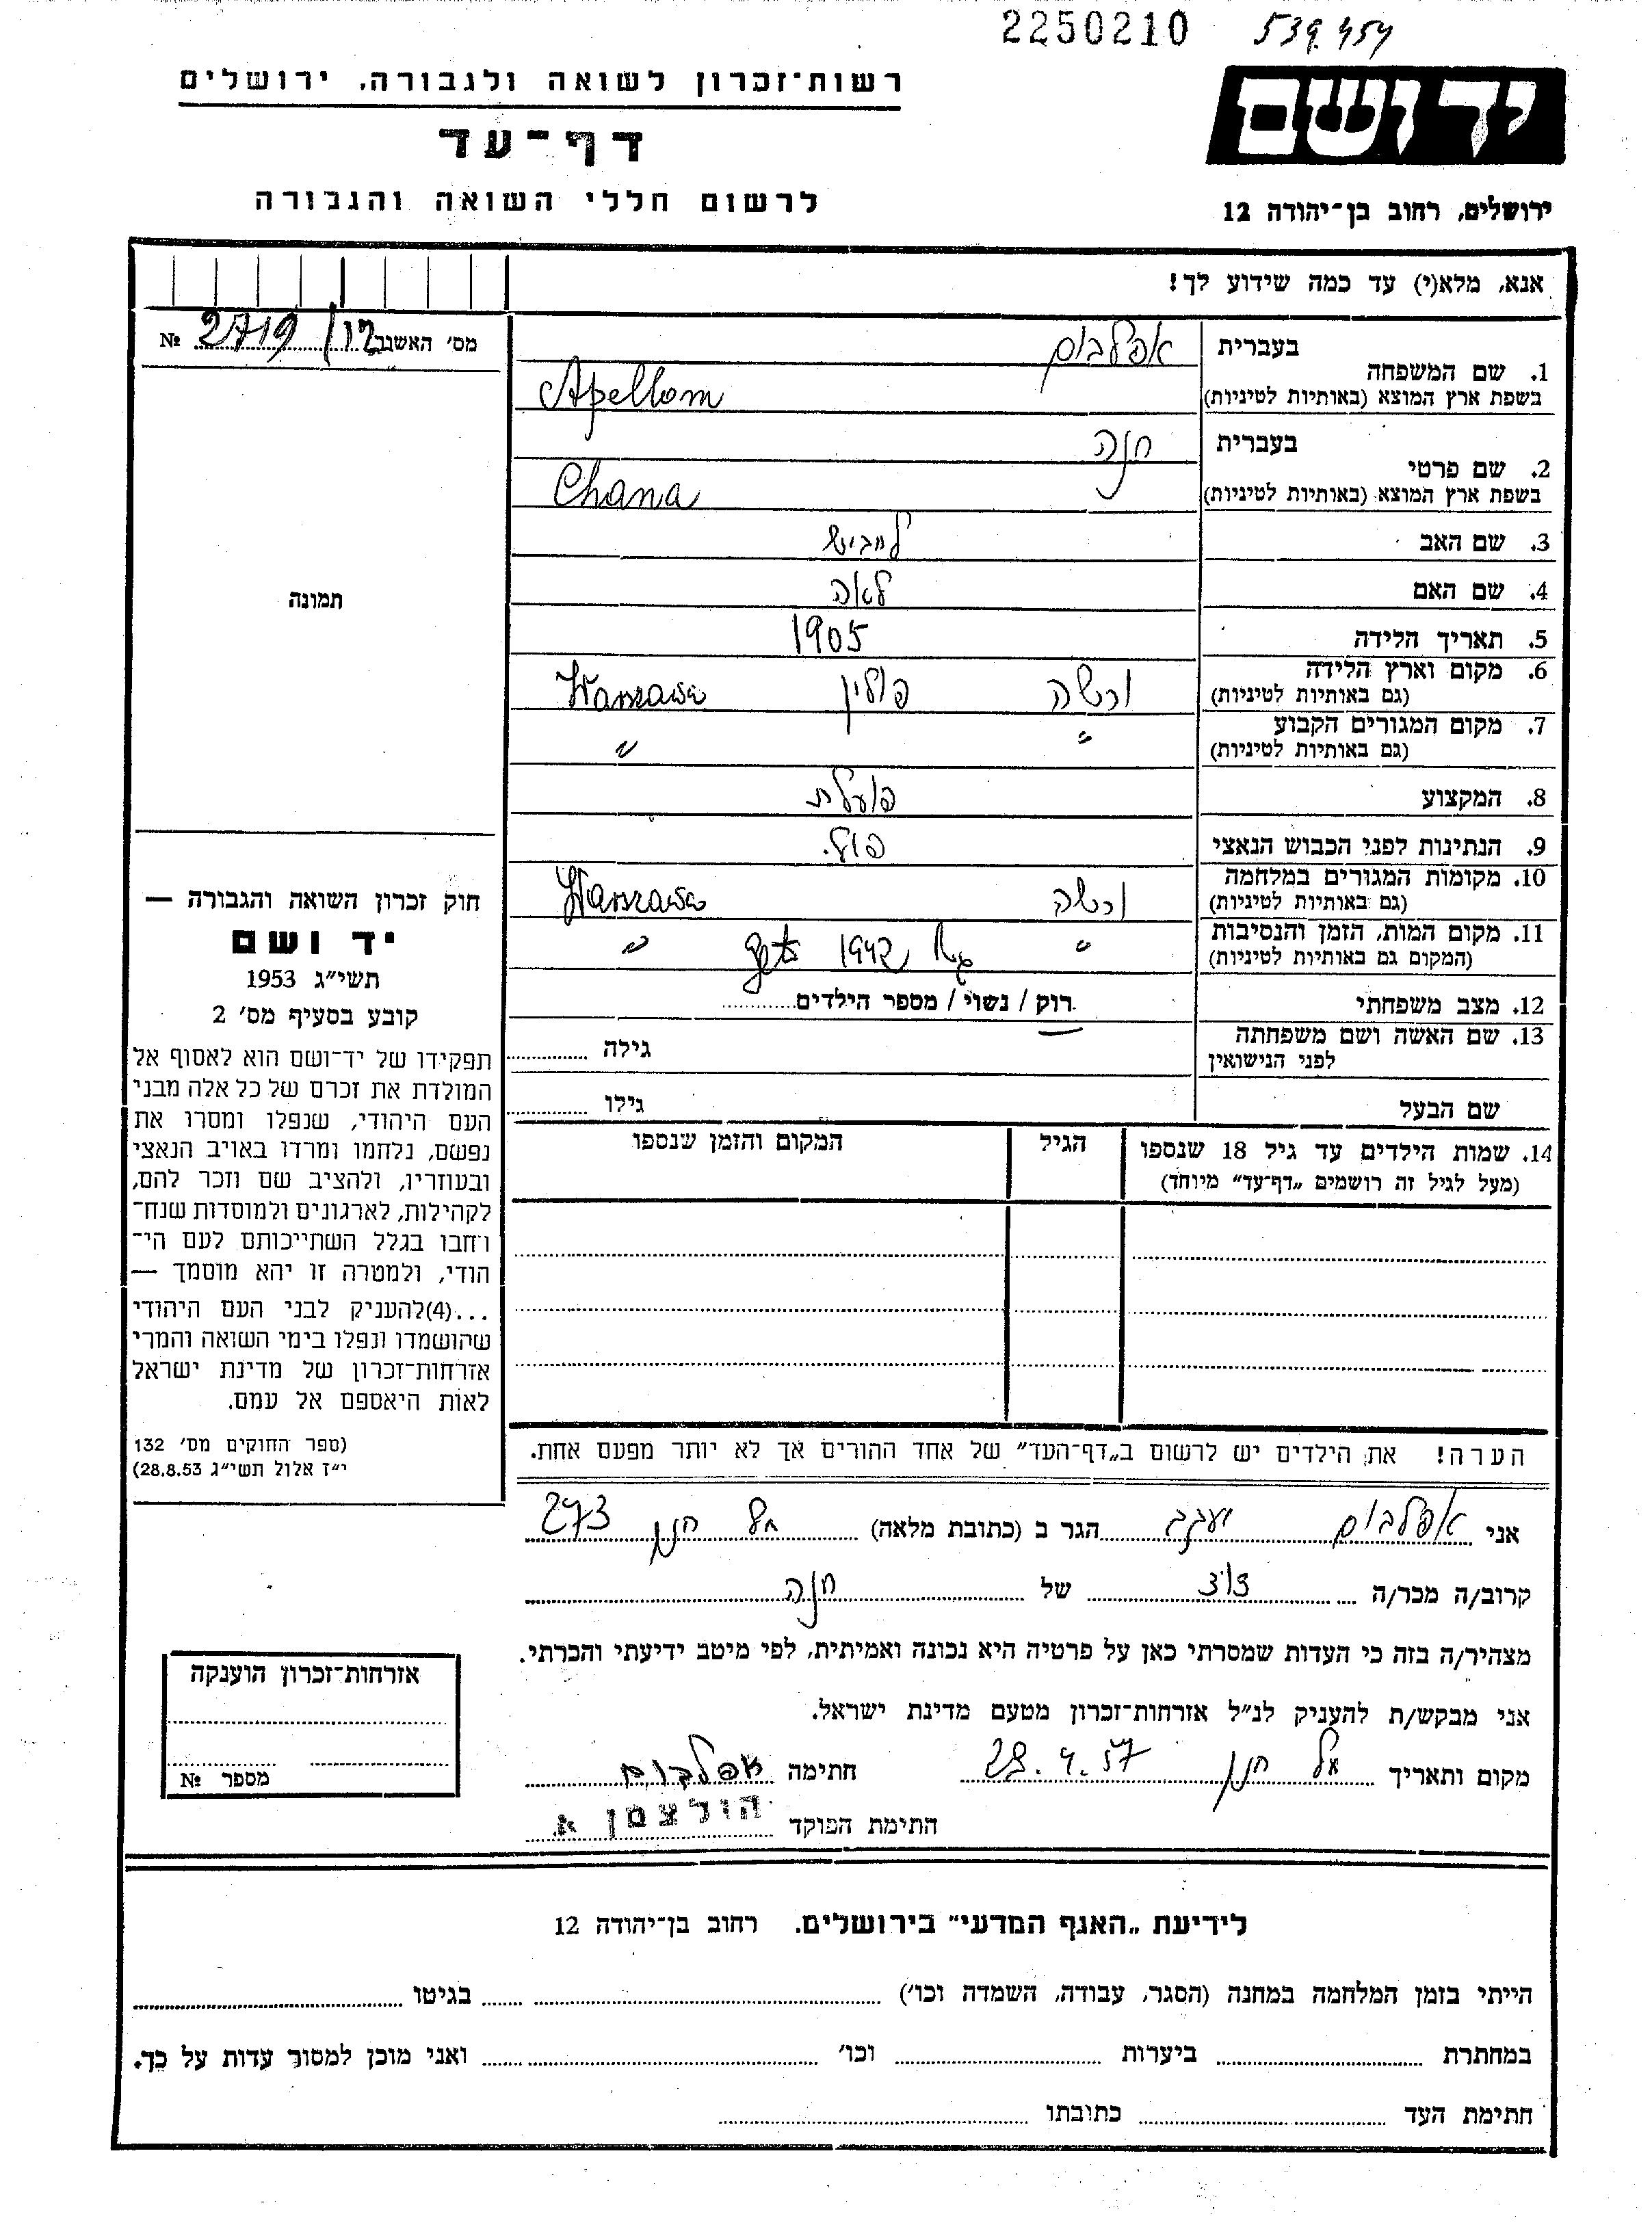 2250210 539.454
רשות־זכרון לשואה ולגבורה, ירושלים
יד ושם
דף־עד
לרשום חללי השואה והגבורה
ירושלים, רחוב בן־יהודה 12
אנא, מלא(י) עד כמה שידוע לך!
מס׳ האשנב 12/ 2719 №
בעברית אפלבום
1. שם המשפחה
בשפת ארץ המוצא (באותיות לטיניות) Apelbom
בעברית חנה
2. שם פרטי
בשפת ארץ המוצא (באותיות לטיניות) Chana
3. שם האב לייביש
4. שם האם לאה
5. תאריך הלידה 1905
6. מקום וארץ הלידה
(גם באותיות לטיניות) ורשה פולין Warszawa
7. מקום המגורים הקבוע
(גם באותיות לטיניות) " "
8. המקצוע פועלת
9. הנתינות לפני הכבוש הנאצי פול.
10. מקומות המגורים במלחמה
(גם באותיות לטיניות) ורשה Warszawa
11. מקום המות, הזמן והנסיבות
(המקום גם באותיות לטיניות) " 1942 "
12. מצב משפחתי רוק / נשוי / מספר הילדים
13. שם האשה ושם משפחתה
לפני הנישואין גילה
שם הבעל גילו
14. שמות הילדים עד גיל 18 שנספו הגיל המקום והזמן שנספו
(מעל לגיל זה רושמים „דף־עד" מיוחד)
הערה! את הילדים יש לרשום ב„דף־העד" של אחד ההורים אך לא יותר מפעם אחת.
תמונה
חוק זכרון השואה והגבורה —
יד ושם
תשי״ג 1953
קובע בסעיף מס׳ 2
תפקידו של יד־ושם הוא לאסוף אל
המולדת את זכרם של כל אלה מבני
העם היהודי, שנפלו ומסרו את
נפשם, נלחמו ומרדו באויב הנאצי
ובעוזריו, ולהציב שם וזכר להם,
לקהילות, לארגונים ולמוסדות שנח־
רחבו בגלל השתייכותם לעם הי־
הודי, ולמטרה זו יהא מוסמך —
...(4)להעניק לבני העם היהודי
שהושמדו ונפלו בימי השואה והמרי
אזרחות־זכרון של מדינת ישראל
לאות היאספם אל עמם.
(ספר החוקים מס׳ 132
י״ז אלול תשי״ג 28.8.53)
אני אפלבום יעקב הגר ב (כתובת מלאה) חנן 273
קרוב/ה מכר/ה דוד של חנה
מצהיר/ה בזה כי העדות שמסרתי כאן על פרטיה היא נכונה ואמיתית, לפי מיטב ידיעתי והכרתי.
אני מבקש/ת להעניק לנ״ל אזרחות־זכרון מטעם מדינת ישראל.
מקום ותאריך חנן 28.4.57 חתימה אפלבום
חתימת הפוקד הולצמן א.
אזרחות־זכרון הוענקה
מספר №
לידיעת „האגף המדעי" בירושלים. רחוב בן־יהודה 12
הייתי בזמן המלחמה במחנה (הסגר, עבודה, השמדה וכו׳) בגיטו
במחתרת ביערות וכו׳ ואני מוכן למסור עדות על כך.
חתימת העד כתובתו